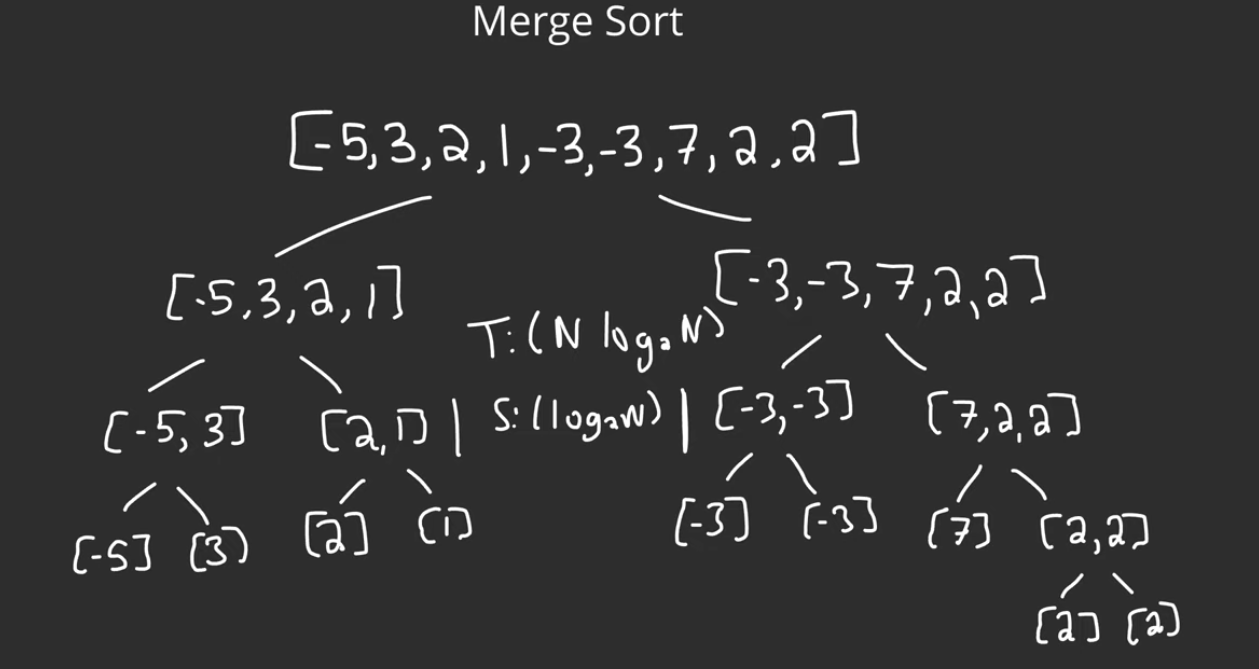 Merge Sort
[-5,3,2,1,-3,-3,7,2,2]
[-5,3,2,1] [-3,-3,7,2,2]
T:(N log₂N)
[-5,3] [2,1] | S:(log₂N) | [-3,-3] [7,2,2]
[-5] [3] [2] [1] [-3] [-3] [7] [2,2]
[2] [2]